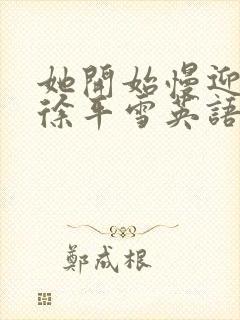 她開始慢迎
徐平雪英語
鄭成根